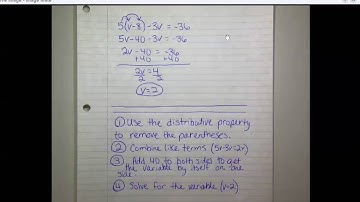 5(v-8)-3v = -36
5v-40-3v = -36
2v -40 = -36
+40 +40
2v = 4
2 2
v=2
① Use the distributive property
to remove the parentheses.
② Combine like terms (5v-3v=2v)
③ Add 40 to both sides to get
the variable by itself on one
side
④ Solve for the variable (v=2)